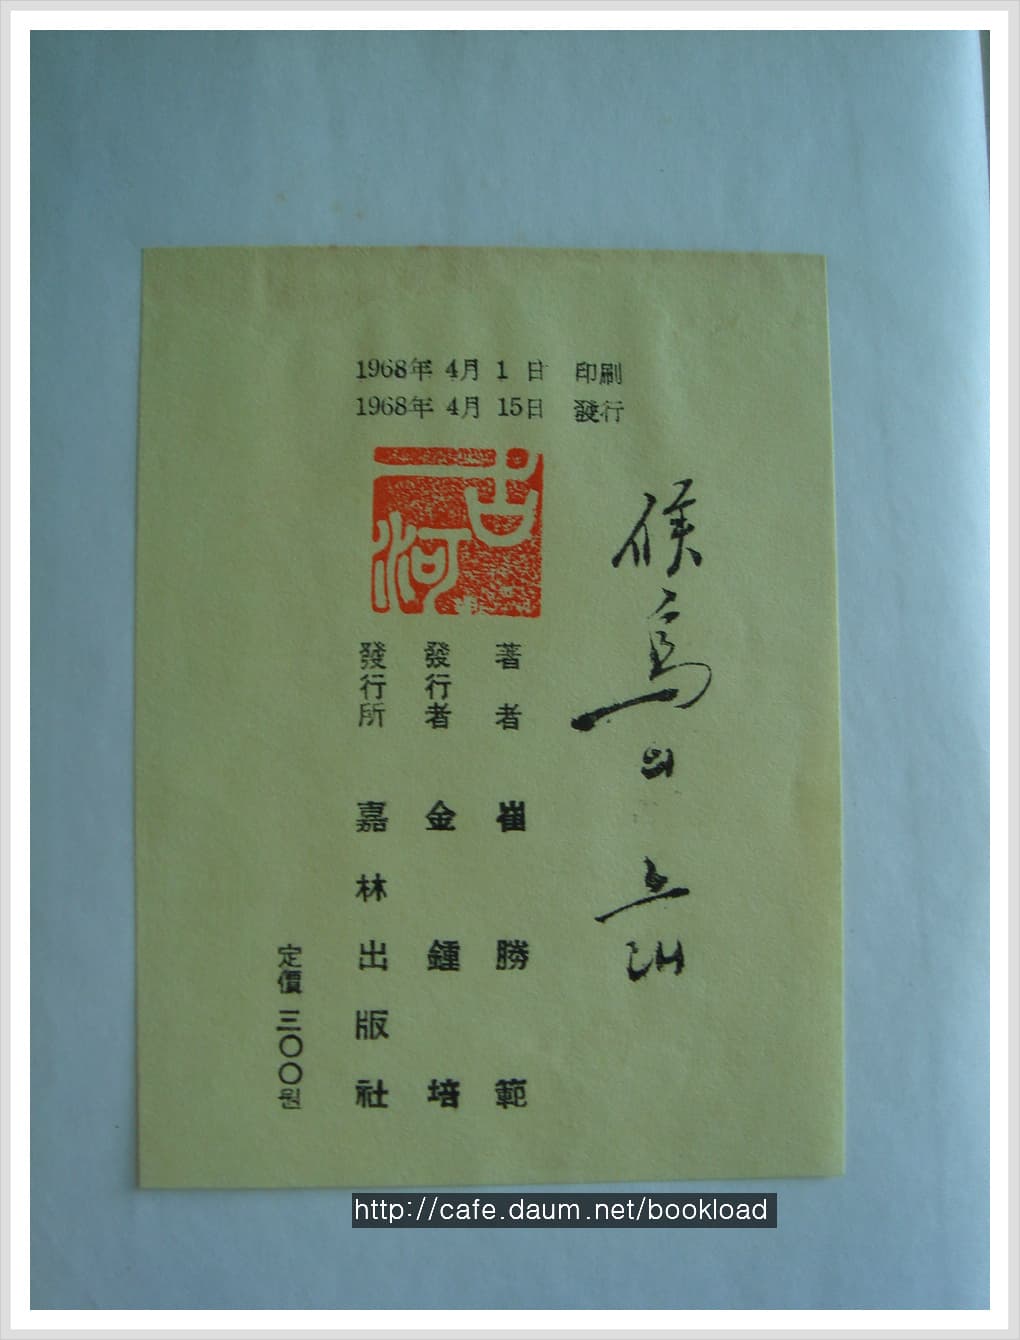 1968年 4月 1日 印刷
1968年 4月 15日 發行
古河
候鳥의 노래
著者 崔勝範
發行者 金鍾培
發行所 嘉林出版社
定價 三〇〇원
http://cafe.daum.net/bookload